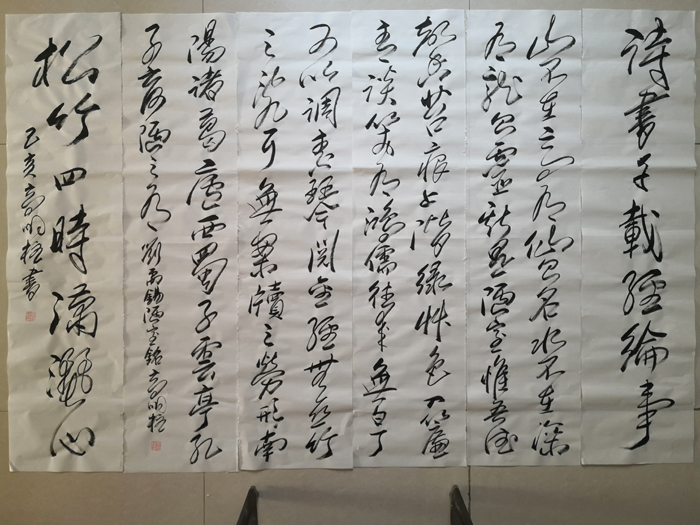 詩書千載經綸事
山不在高有仙則名水不在深
有龍則靈斯是陋室惟吾德
馨苔痕上階綠草色入簾
青談笑有鴻儒往來無白丁
可以調素琴閱金經無絲竹
之亂耳無案牘之勞形南
陽諸葛廬西蜀子雲亭孔
子云何陋之有 劉禹錫陋室銘
松竹四時瀟灑心
己亥 書